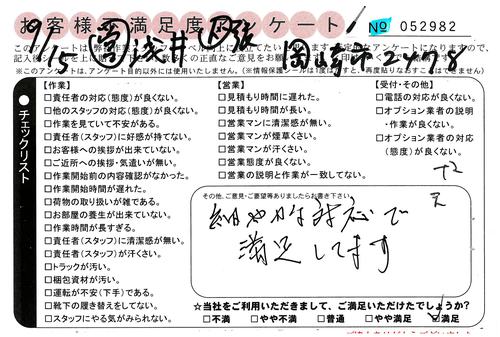 お客様満足度アンケート
No 052982
9/15
浅井
2478
チェックリスト
【作業】
□責任者の対応(態度)が良くない。
□他のスタッフの対応(態度)が良くない。
□作業を見ていて不安がある。
□責任者(スタッフ)に好感が持てない。
□お客様への挨拶が出来ていない。
□ご近所への挨拶・気遣いが無い。
□作業開始前の内容確認がなかった。
□作業開始時間が遅れた。
□荷物の取り扱いが雑である。
□お部屋の養生が出来ていない。
□作業時間が長すぎる。
□責任者(スタッフ)に清潔感が無い。
□責任者(スタッフ)が汗くさい。
□トラックが汚い。
□梱包資材が汚い。
□運転が不安(下手)である。
□靴下の履き替えをしてない。
□スタッフにやる気がみられない。
【営業】
□見積もり時間に遅れた。
□見積もり時間が長い。
□営業マンに清潔感が無い。
□営業マンが煙草くさい。
□営業マンが汗くさい。
□営業態度が良くない。
□営業の説明と作業が一致してない。
【受付・その他】
□電話の対応が良くない。
□オプション業者の説明
・作業が良くない。
□オプション業者の対応
(態度)が良くない。
その他、ご意見・ご要望等ありましたらお書き下さい。
対応で
満足してます
☆当社をご利用いただきまして、ご満足いただけたでしょうか?
□不満 □やや不満 □普通 □やや満足 □満足